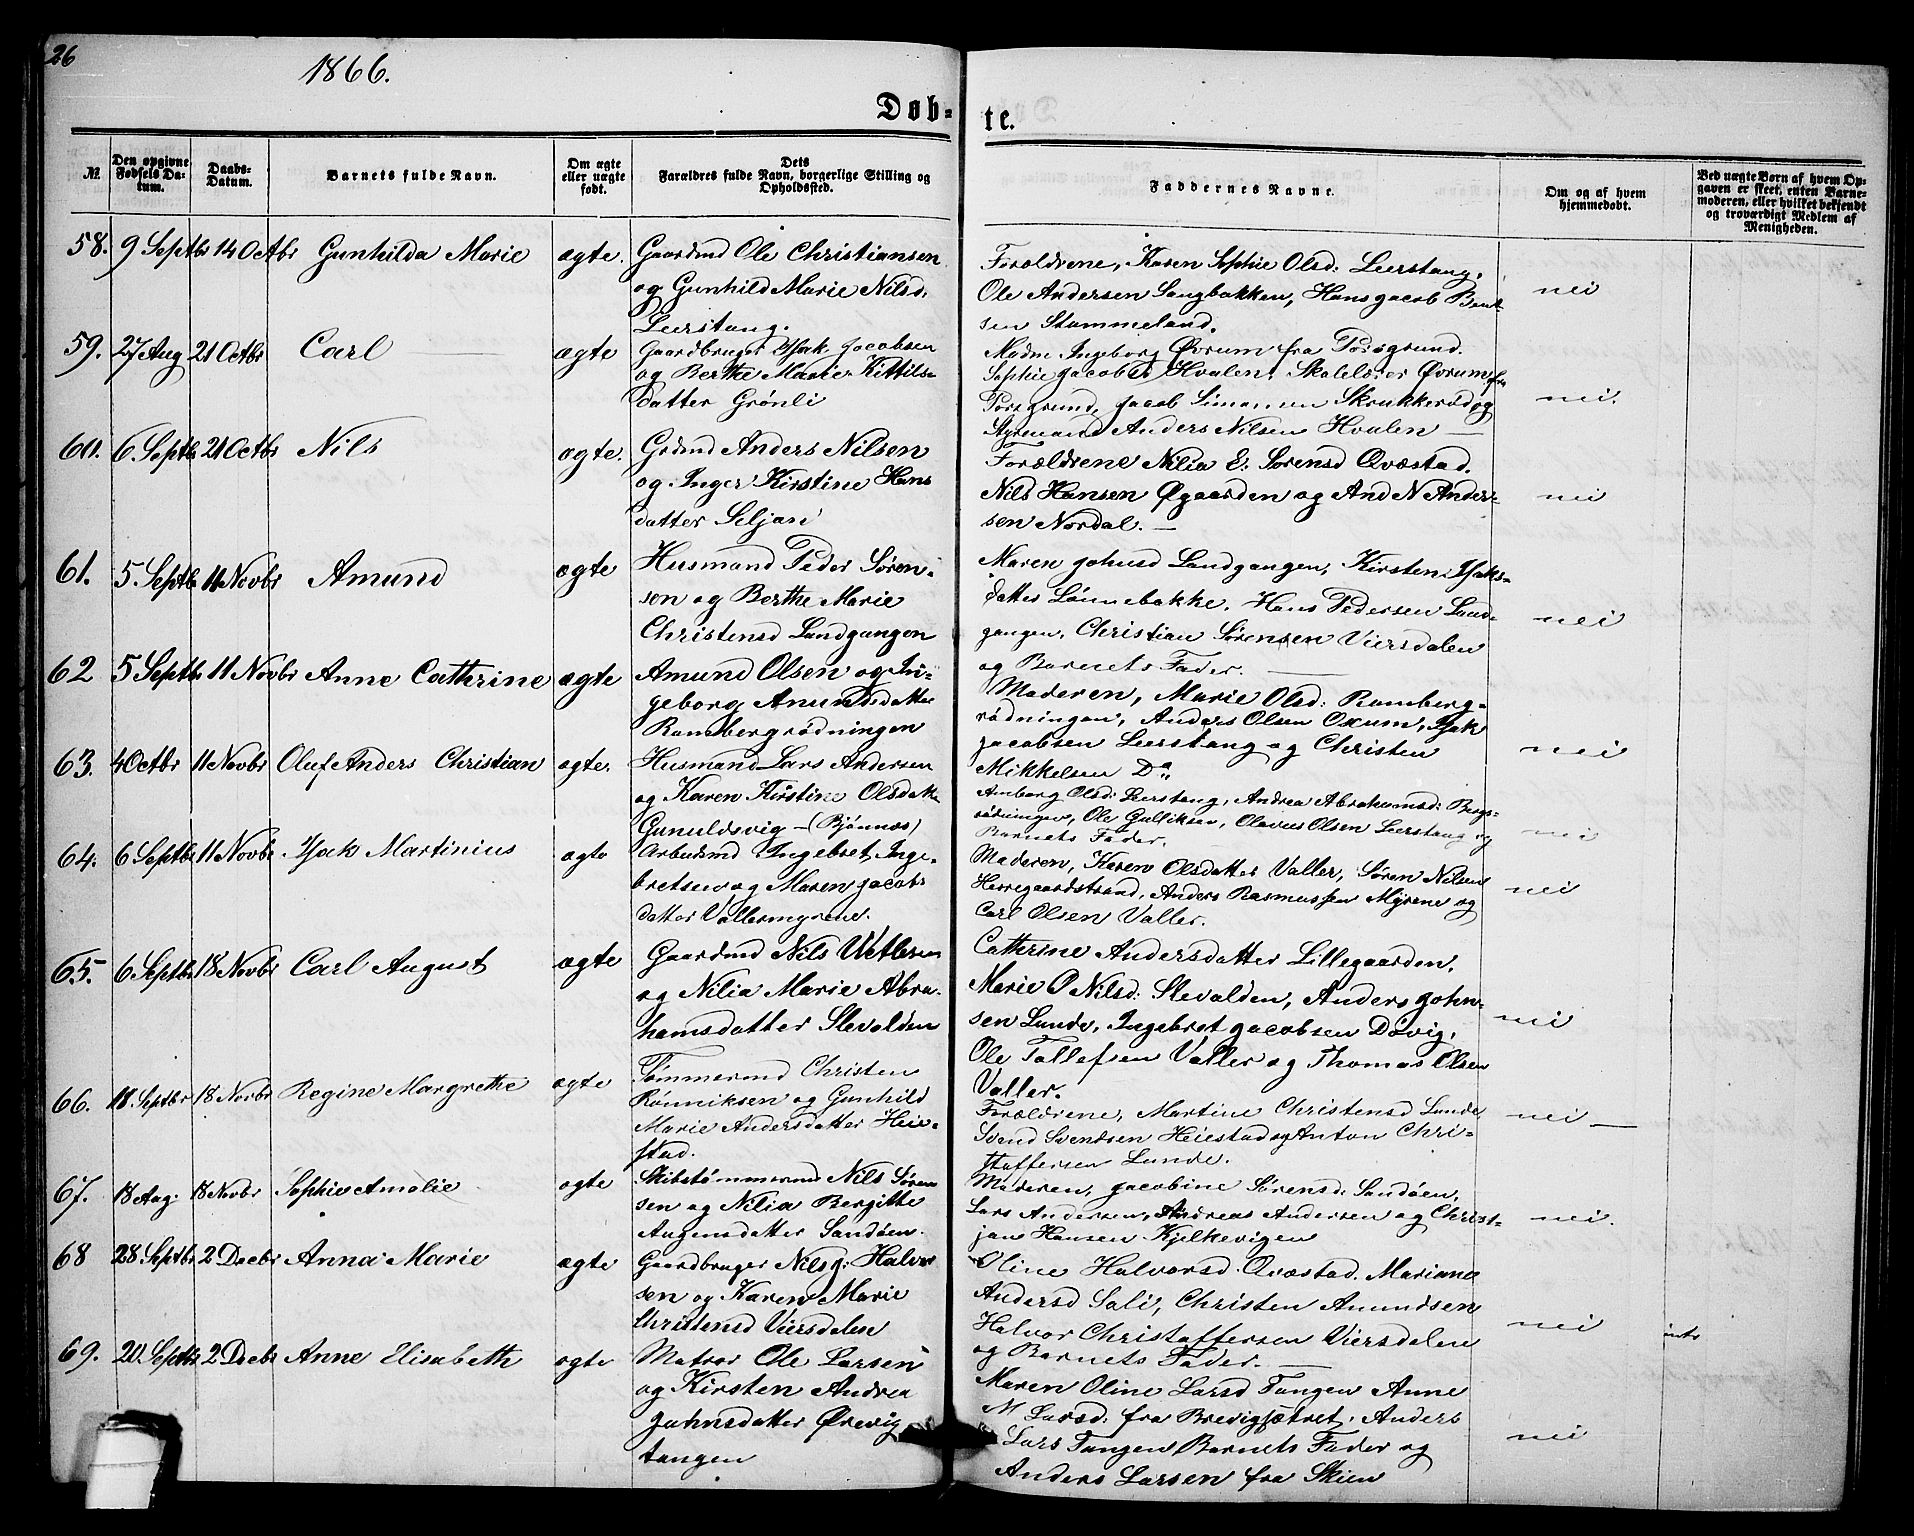 26
1866.
Døb-
te.
№
Den opgivne Fødsels Datum.
Daabs-Datum.
Barnets fulde Navn.
Om ægte eller uægte født.
Dets Forældres fulde Navn, borgerlige Stilling og Opholdssted.
Faddernes Navne.
Om og af hvem hjemmedøbt.
Ved uægte Børn af hvem Opgaven er skeet, enten Barnemoderen, eller hvilket bekjendt og troværdigt Medlem af Menigheden.
58. 9 Septbr 14 Octbr Gunhilda Marie ægte.
Gaardmd Ole Christiansen
og Gunhild Marie Nilsd.
Leerstang.
Forældrene, Karen Sophie Olsd: Leerstang,
Ole Andersen Langbakken, Hans Jacob Bent-
sen Stammeland.
nei
59. 27 Aug 21 Octbr Carl ægte
Gaardbruger Isak Jacobsen
og Berthe Marie Kittils-
datter Grønli
Madm Ingeborg Øvrum fra Porsgrund.
Sophie Jacobd Hvalen, Skolelærer Øvrum fra
Porsgrund, Jacob Simonsen Skrukkerød og
Styrmand Anders Nilsen Hvalen —
nei.
60. 6. Septbr 21 Octbr Nils ægte.
Grdmd Anders Nilsen
og Inger Kirstine Hans
datter Seljan
Forældrene Nilia E. Sørensd Qvæstad.
Nils Hansen Øgaarden og And N Ander-
sen Nordal. —
nei
61. 5. Septbr 11 Novbr Amund ægte
Husmand Peder Søren-
sen og Berthe Marie
Christensd Landgangen
Maren Johnsd Landgangen, Kirsten Isaks-
datter Lønnebakke. Hans Pedersen Land-
gangen, Christian Sørensen Viersdalen
og Barnets Fader. —
nei
62 5 Septbr 11 Novbr Anne Cathrine ægte
Amund Olsen og In-
geborg Amundsdatter
Rambergrødningen
Moderen, Marie Olsd: Ramberg-
rødningen, Anders Olsen Oxum, Isak
Jacobsen Leerstang og Christen
Mikkelsen Do
nei
63. 4 Octbr 11 Novbr Oluf Anders Christian ægte.
Husmand Lars Andersen
og Karen Kirstine Olsdatter
Gunuldsvig – (Bjønnæs)
Amborg Olsd: Leerstang, Andrea Abrahamsd: Bergs-
rødningen, Ole Gulliksen, Olavus Olsen Leerstang og
Barnets Fader.
nei
64. 6 Septbr 11 Novbr Isak Martinius ægte
Arbeidsmd Ingebret Inge-
bretsen og Maren Jacobs
datter Vallermyrene.
Moderen, Karen Olsdatter Valler, Søren Nilsen
Herregaardstrand, Anders Rasmussen Myrene og
Carl Olsen Valler.
nei
65. 6 Septbr 18 Novbr Carl August ægte
Gaardmd Nils Wetlesen
og Nilia Marie Abra-
hamsdatter Slevolden
Cathrine Andersdatter Lillegaarden.
Marie O Nilsd: Slevolden, Anders John-
sen Lunde, Ingebret Jacobsen Døvig,
Ole Tollefsen Valler og Thomas Olsen
Valler.
nei
66. 18. Septbr 18 Novbr Regine Margrethe ægte
Tømmermd Christen
Rønniksen og Gunhild
Marie Andersdatter Heie-
stad.
Forældrene, Martine Christensd Lunde
Svend Svendsen Heiestad og Anton Chri-
stoffersen Lunde.
nei —
67. 18 Aug. 18 Novbr Sophie Amalie ægte
Skibstømmermd Nils Søren
sen og Nilia Bergitte
Augensdatter Sandøen.
Moderen, Jacobine Sørensd: Sandøen,
Lars Andersen, Andreas Andersen og Christ-
jan Hansen Kjelkevigen
nei.
68 28 Septbr 2 Decbr Anna Marie ægte
Gaardbruger Nils J: Halvor
sen og Karen Marie
Christensd Viersdalen
Oline Halvorsd. Qvæstad. Mariane
Andersd Sali, Christen Amundsen
Halvor Christoffersen Viersdalen
og Barnets Fader. —
nei
69. 20. Septbr 2 Decbr Anne Elisabeth ægte
Matros Ole Larsen
og Kirsten Andrea
Johnsdatter Ørevig
tangen
Maren Oline Larsd Tangen Anne
M Larsd. fra Brevigsætret, Anders
Lars Tangen Barnets Fader og
Anders Larsen fra Skien
nei